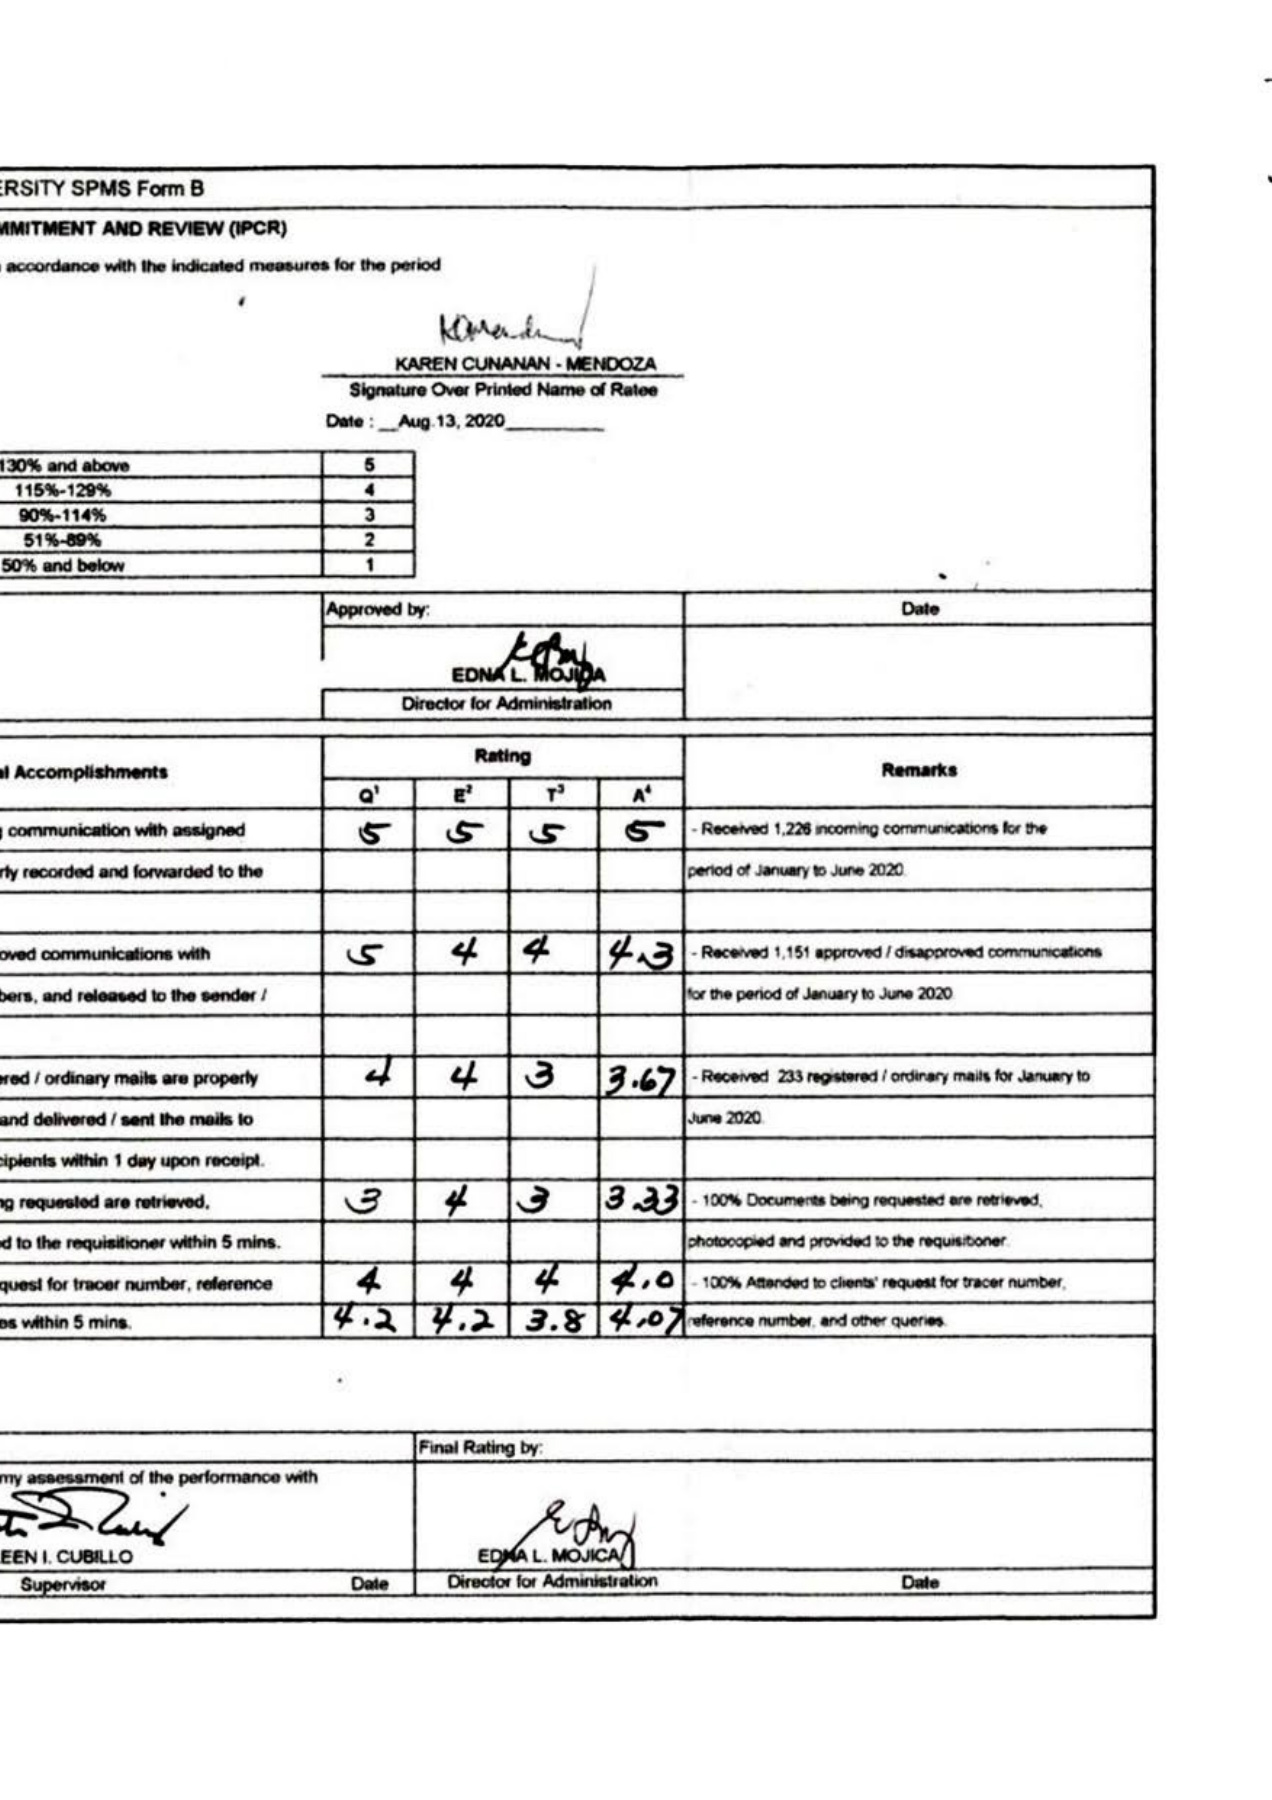 ERSITY SPMS Form B
MMITMENT AND REVIEW (IPCR)
accordance with the indicated measures for the period
KAREN CUNANAN - MENDOZA
Signature Over Printed Name of Ratee
Date : __Aug.13, 2020__________
130% and above 5
115%-129% 4
90%-114% 3
51%-89% 2
50% and below 1
Approved by: Date
EDNA L. MOJICA
Director for Administration
Rating
al Accomplishments Remarks
Q¹ E² T³ A⁴
g communication with assigned 5 5 5 5 - Received 1,226 incoming communications for the
rly recorded and forwarded to the period of January to June 2020.
oved communications with 5 4 4 4.3 - Received 1,151 approved / disapproved communications
bers, and released to the sender / for the period of January to June 2020
ered / ordinary mails are properly 4 4 3 3.67 - Received 233 registered / ordinary mails for January to
and delivered / sent the mails to June 2020.
cipients within 1 day upon receipt.
ng requested are retrieved, 3 4 3 3.33 - 100% Documents being requested are retrieved,
d to the requisitioner within 5 mins. photocopied and provided to the requisitioner.
quest for tracer number, reference 4 4 4 4.0 - 100% Attended to clients' request for tracer number,
es within 5 mins. 4.2 4.2 3.8 4.07 reference number, and other queries.
Final Rating by:
my assessment of the performance with
EEN I. CUBILLO EDNA L. MOJICA
Supervisor Date Director for Administration Date